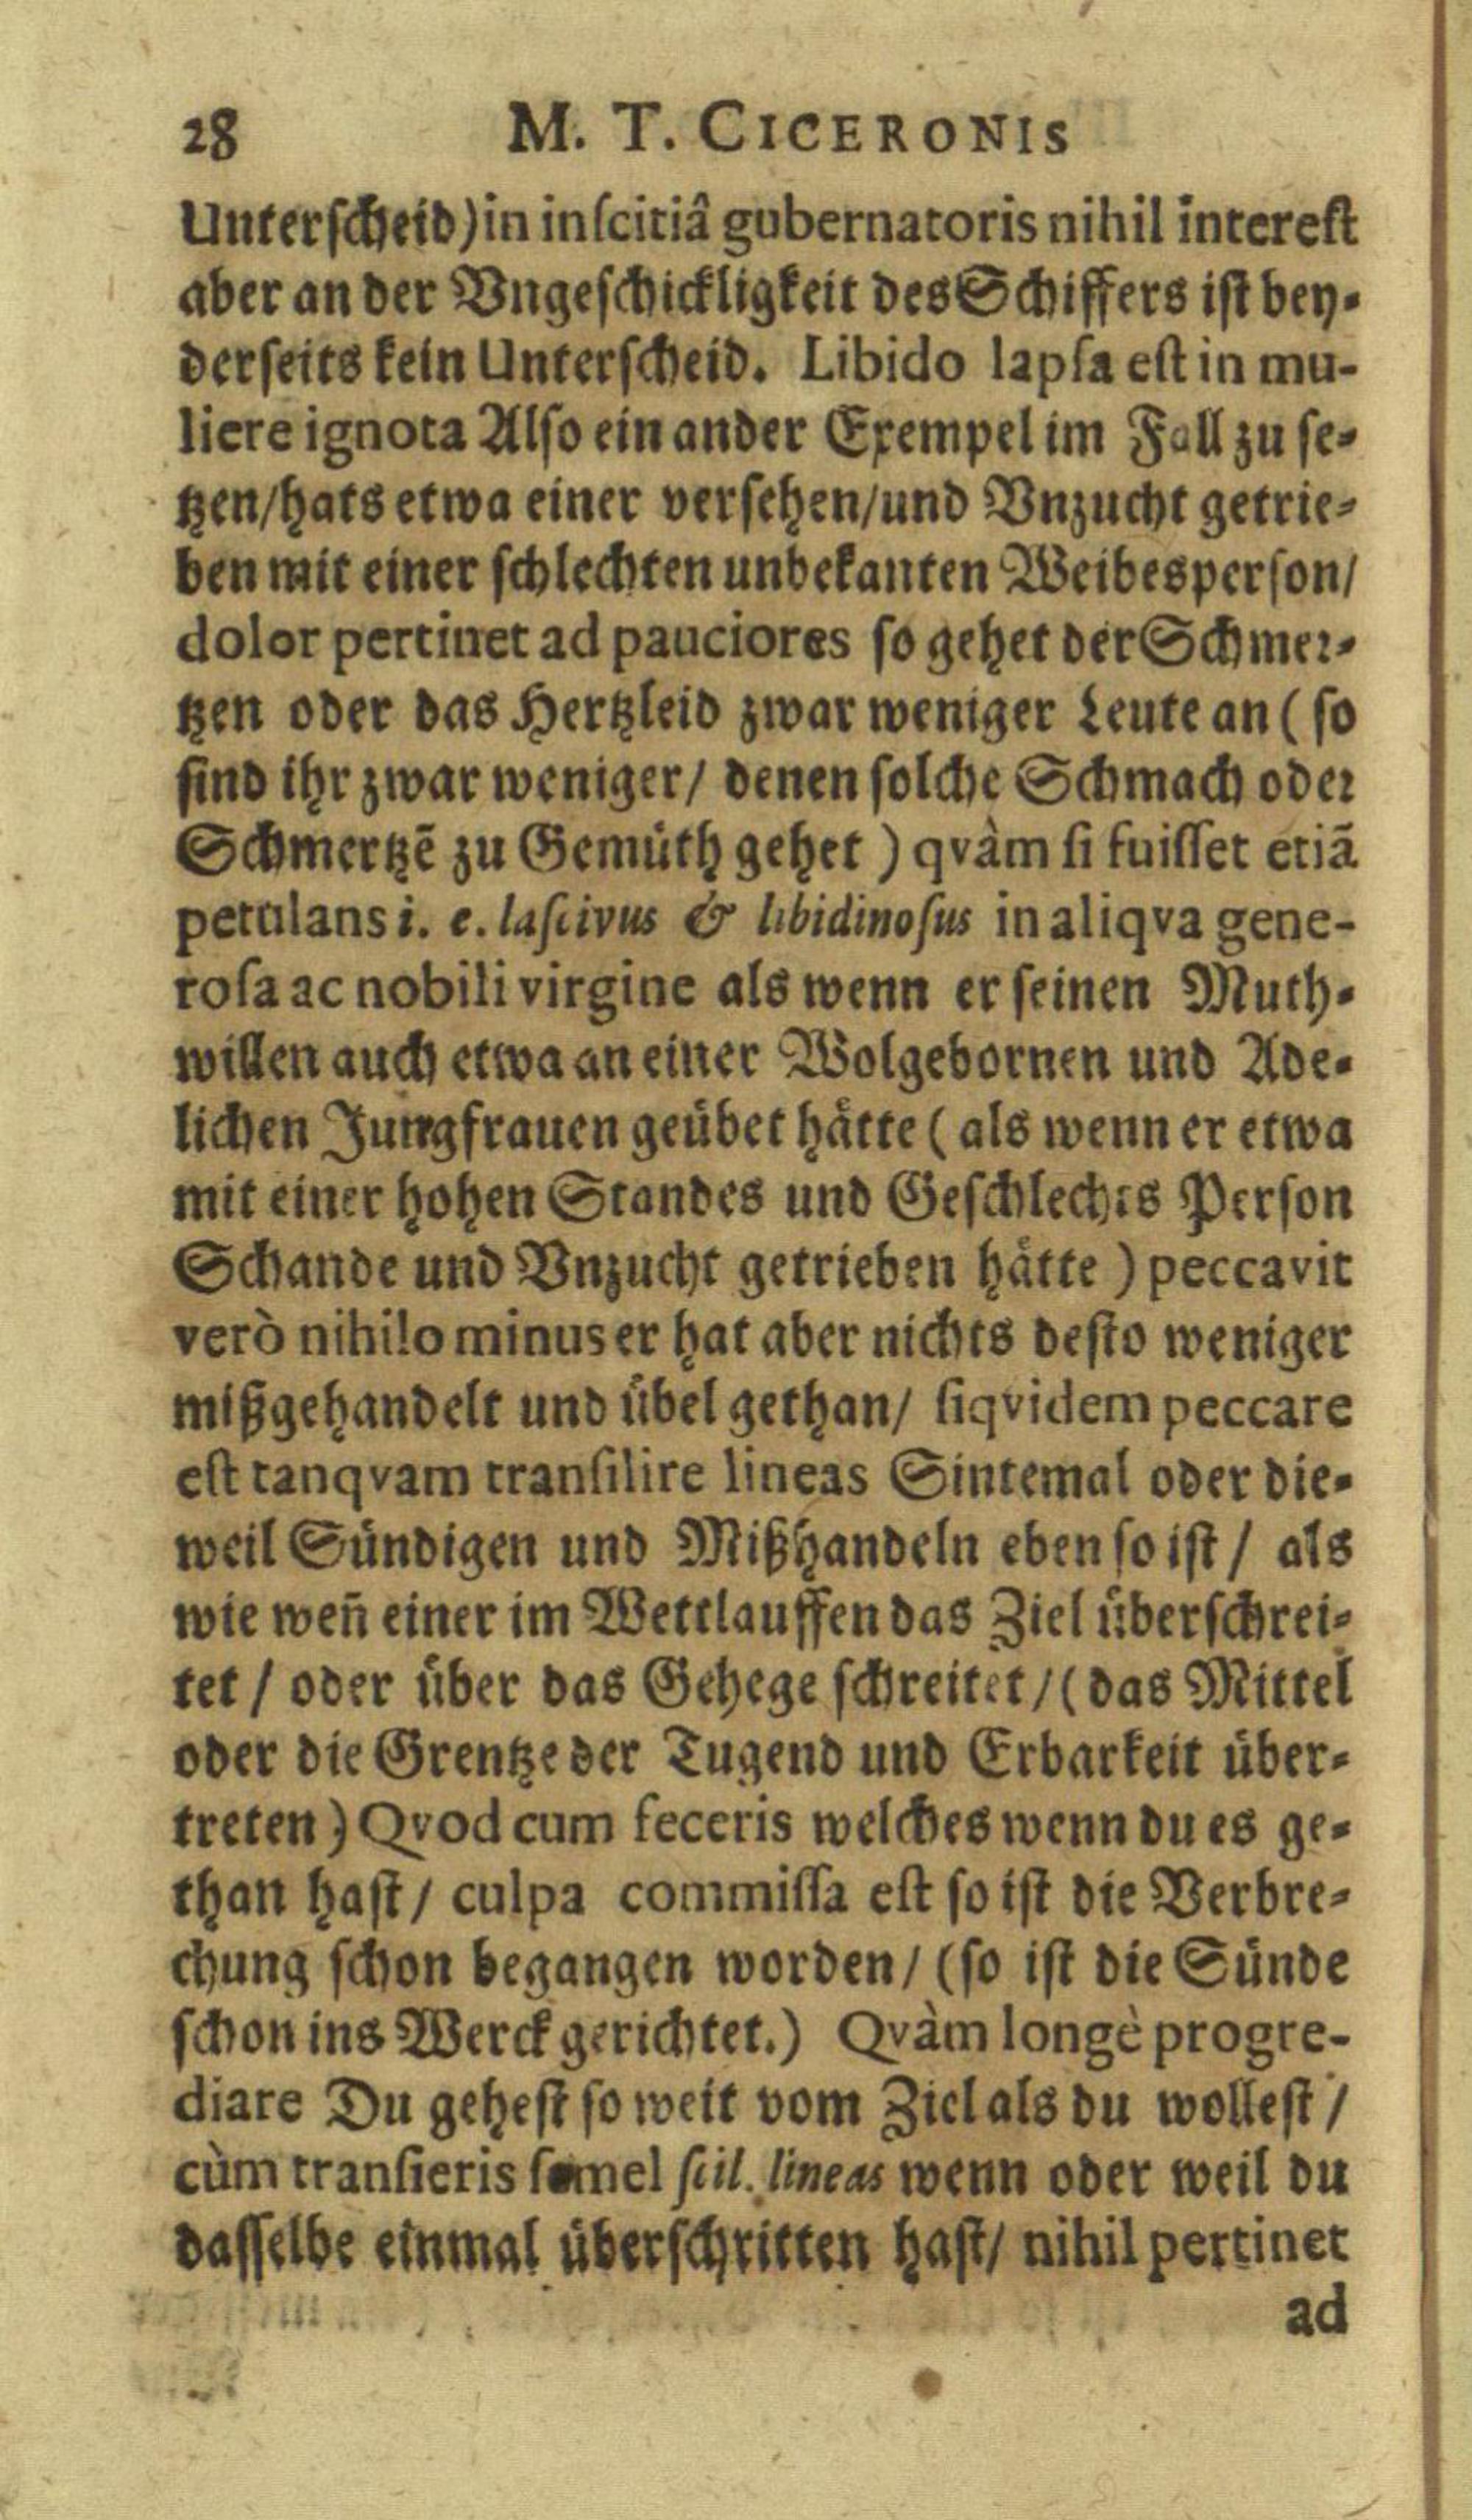 28 M. T. CICERONIS
Unterſcheid) in inſcitiâ gubernatoris nihil intereſt
aber an der Vngeſchickligkeit des Schiffers iſt bey-
derſeits kein Unterſcheid. Libido lapſa eſt in mu-
liere ignota Alſo ein ander Exempel im Fall zu ſe-
tzen/hats etwa einer verſehen/und Vnzucht getrie-
ben mit einer ſchlechten unbekanten Weibesperſon/
dolor pertinet ad pauciores ſo gehet der Schmer-
tzen oder das Hertzleid zwar weniger Leute an (ſo
ſind ihr zwar weniger/ denen ſolche Schmach oder
Schmertzē zu Gemüth gehet) qvàm ſi fuiſſet etiã
petulans i. e. laſcivus & libidinoſus in aliqva gene-
roſa ac nobili virgine als wenn er ſeinen Muth-
willen auch etwa an einer Wolgebornen und Ade-
lichen Jungfrauen geübet hätte (als wenn er etwa
mit einer hohen Standes und Geſchlechts Perſon
Schande und Vnzucht getrieben hätte) peccavit
verò nihilo minus er hat aber nichts deſto weniger
mißgehandelt und übel gethan/ ſiqvidem peccare
eſt tanqvam tranſilire lineas Sintemal oder die-
weil Sündigen und Mißhandeln eben ſo iſt / als
wie wen̄ einer im Wettlauffen das Ziel überſchrei-
tet / oder über das Gehege ſchreitet/(das Mittel
oder die Grentze der Tugend und Erbarkeit über-
treten) Qvod cum feceris welches wenn du es ge-
than haſt/ culpa commiſſa eſt ſo iſt die Verbre-
chung ſchon begangen worden/ (ſo iſt die Sünde
ſchon ins Werck gerichtet.) Qvàm longè progre-
diare Du geheſt ſo weit vom Ziel als du wolleſt /
cùm tranſieris ſemel ſcil. lineas wenn oder weil du
daſſelbe einmal überſchritten haſt/ nihil pertinet
ad